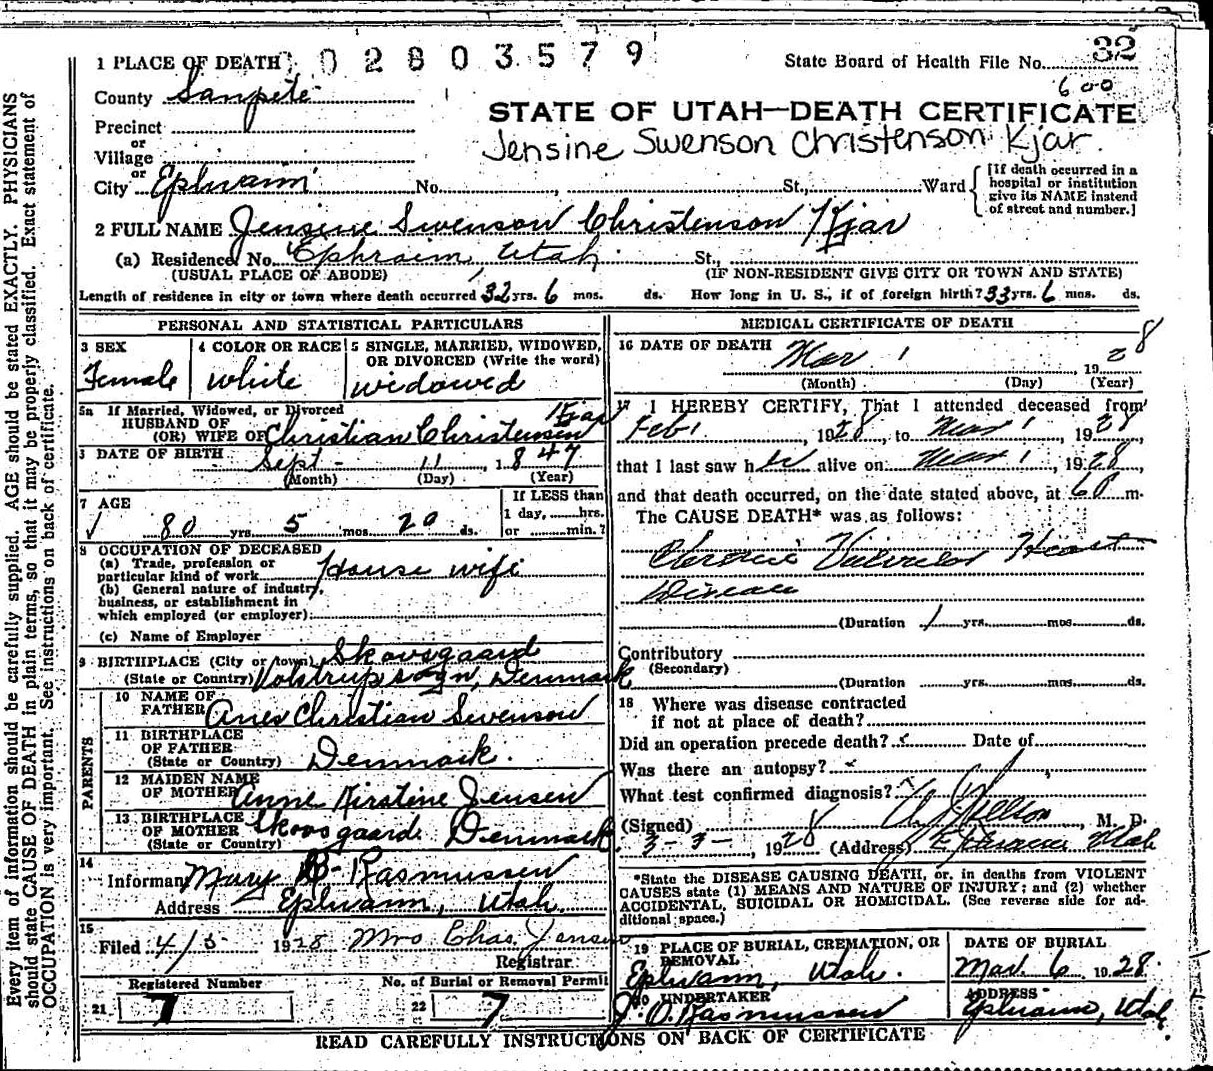 32
1 PLACE OF DEATH 02803579 State Board of Health File No.
600
County Sanpete
STATE OF UTAH—DEATH CERTIFICATE
Precinct
or
Jensine Swenson Christenson Kjar.
Village
or
City Ephraim No. , St., Ward
[If death occurred in a
hospital or institution
give its NAME instead
of street and number.]
2 FULL NAME Jensine Swenson Christenson Kjar
(a) Residence No. Ephraim, Utah St.,
(USUAL PLACE OF ABODE) (IF NON-RESIDENT GIVE CITY OR TOWN AND STATE)
Length of residence in city or town where death occurred 32 yrs. 6 mos. ds. How long in U. S., if of foreign birth? 33 yrs. 6 mos. ds.
PERSONAL AND STATISTICAL PARTICULARS
3 SEX
Female
4 COLOR OR RACE
White
5 SINGLE, MARRIED, WIDOWED,
OR DIVORCED (Write the word)
widowed
5a If Married, Widowed, or Divorced
HUSBAND OF
(OR) WIFE OF Christian Christensen Kjar
DATE OF BIRTH Sept- 11, 1847
(Month) (Day) (Year)
7 AGE
80 yrs 5 mos. 20 ds.
If LESS than
1 day, hrs.
or min.?
8 OCCUPATION OF DECEASED
(a) Trade, profession or
particular kind of work House wife
(b) General nature of industry,
business, or establishment in
which employed (or employer)
(c) Name of Employer
9 BIRTHPLACE (City or town) Skovsgaard
(State or Country) Volstrup sogn, Denmark
PARENTS
10 NAME OF
FATHER Anes Christian Swenson
11 BIRTHPLACE
OF FATHER
(State or Country) Denmark.
12 MAIDEN NAME
OF MOTHER Anne Kirstine Jensen
13 BIRTHPLACE
OF MOTHER Skovsgaard Denmark
(State or Country)
14
Informant Mary B. Rasmussen
Address Ephraim, Utah.
15
Filed 4/5 1928 Mrs Chas. Jensen
Registrar
Registered Number
21 7
No. of Burial or Removal Permit
22 7
MEDICAL CERTIFICATE OF DEATH
16 DATE OF DEATH
Mar 1 1928
(Month) (Day) (Year)
17 I HEREBY CERTIFY, That I attended deceased from
Feb 1, 1928, to Mar 1 1928
that I last saw her alive on Mar 1, 1928,
and that death occurred, on the date stated above, at m.
The CAUSE DEATH* was as follows:
Chronic Valvular Heart
Disease
(Duration 1 yrs. mos. ds.
Contributory
(Secondary)
(Duration yrs. mos. ds.
18 Where was disease contracted
if not at place of death?
Did an operation precede death? Date of
Was there an autopsy?
What test confirmed diagnosis?
(Signed) M. D.
3-3-, 1928 (Address) Ephraim Utah
*State the DISEASE CAUSING DEATH, or, in deaths from VIOLENT
CAUSES state (1) MEANS AND NATURE OF INJURY; and (2) whether
ACCIDENTAL, SUICIDAL OR HOMICIDAL. (See reverse side for ad-
ditional space.)
19 PLACE OF BURIAL, CREMATION, OR
REMOVAL
Ephraim, Utah.
DATE OF BURIAL
Mar. 6 1928.
20 UNDERTAKER
J. O. Rasmussen
ADDRESS
Ephraim, Utah.
READ CAREFULLY INSTRUCTIONS ON BACK OF CERTIFICATE
Every item of information should be carefully supplied. AGE should be stated EXACTLY. PHYSICIANS
should state CAUSE OF DEATH in plain terms, so that it may be properly classified. Exact statement of
OCCUPATION is very important. See instructions on back of certificate.